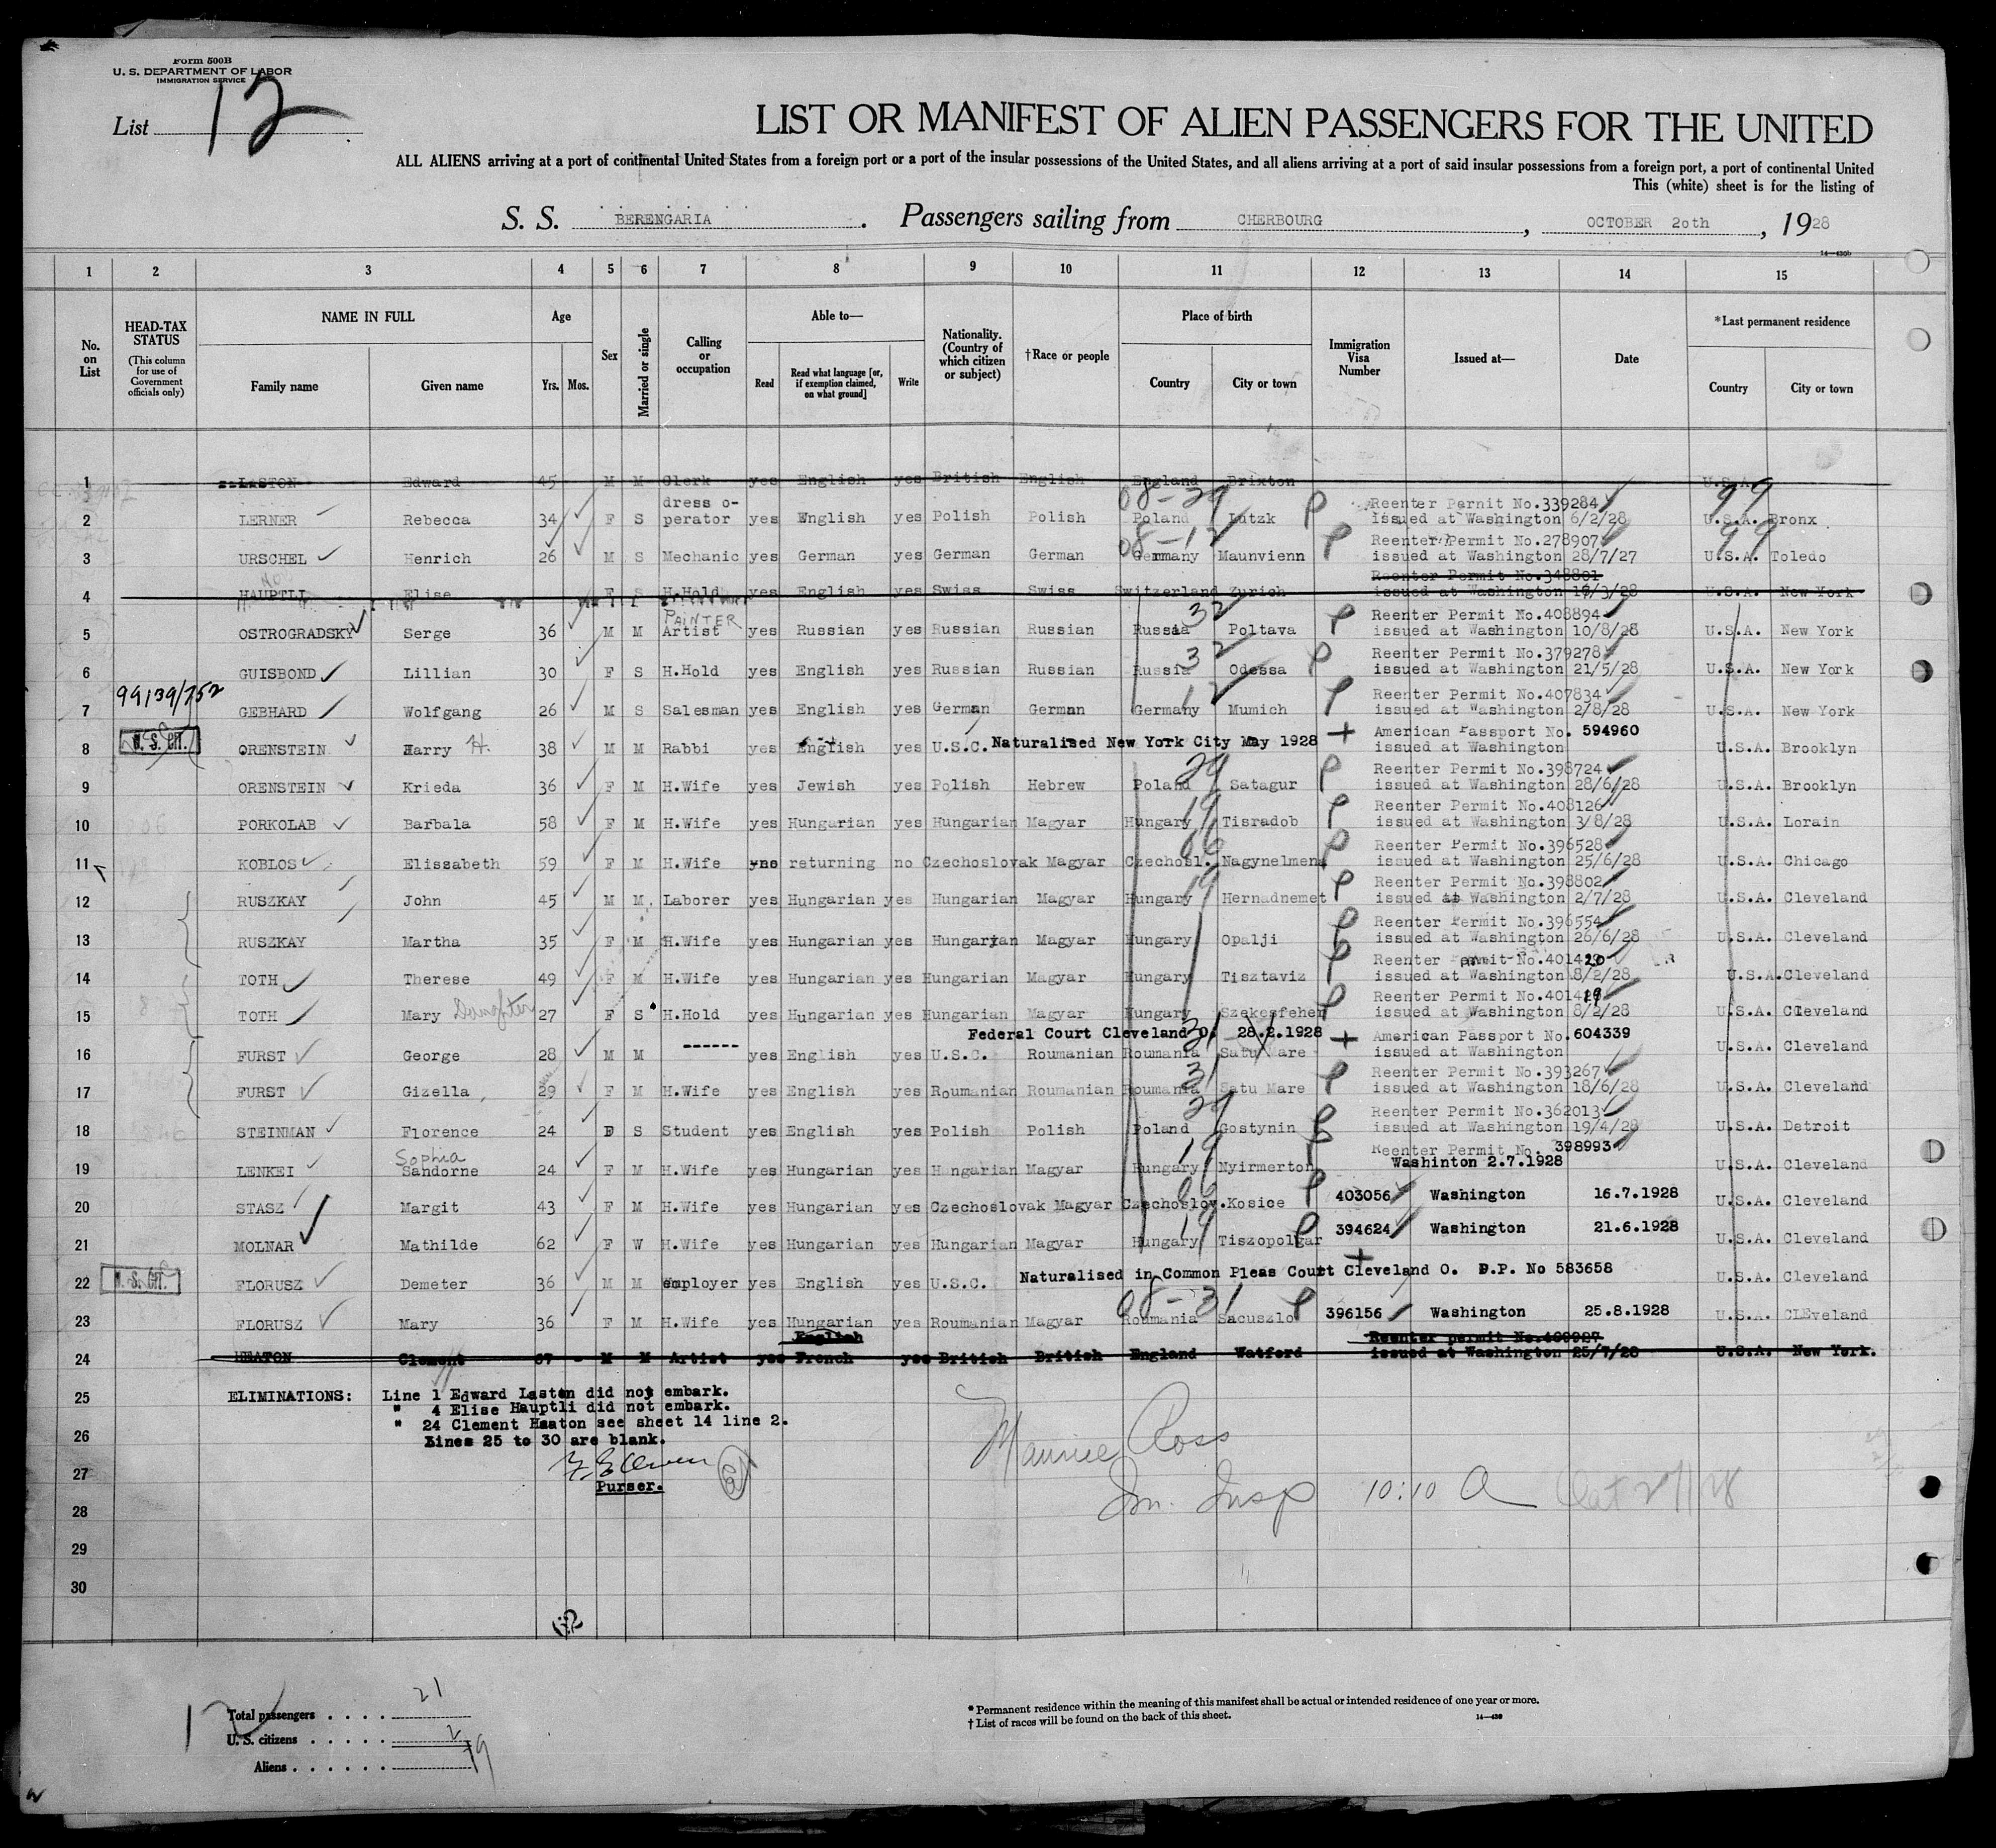 Form 500B
U. S. DEPARTMENT OF LABOR
IMMIGRATION SERVICE
List 12
LIST OR MANIFEST OF ALIEN PASSENGERS FOR THE UNITED
ALL ALIENS arriving at a port of continental United States from a foreign port or a port of the insular possessions of the United States, and all aliens arriving at a port of said insular possessions from a foreign port, a port of continental United
This (white) sheet is for the listing of
S. S. BERENGARIA. Passengers sailing from CHERBOURG, OCTOBER 20th, 1928
14-430b
1 2 3 4 5 6 7 8 9 10 11 12 13 14 15
No. on List
HEAD-TAX STATUS
(This column for use of Government officials only)
NAME IN FULL
Family name Given name
Age
Yrs. Mos.
Sex
Married or single
Calling or occupation
Able to—
Read Read what language [or, if exemption claimed, on what ground] Write
Nationality. (Country of which citizen or subject)
†Race or people
Place of birth
Country City or town
Immigration Visa Number
Issued at—
Date
*Last permanent residence
Country City or town
1 LASTON Edward 45 M M Clerk yes English yes British English England Brixton U.S.A.
08-29 99
dress o- Reenter Permit No.339284
2 LERNER Rebecca 34 F S perator yes English yes Polish Polish Poland Lutzk issued at Washington 6/2/28 U.S.A. Bronx
08-12 99
Reenter Permit No.278907
3 URSCHEL Henrich 26 M S Mechanic yes German yes German German Germany Maunvienn issued at Washington 28/7/27 U.S.A. Toledo
Reenter Permit No.348801
4 HAUPTLI Elise F S H.Hold yes English yes Swiss Swiss Switzerland Zurich issued at Washington 19/3/28 U.S.A. New York
PAINTER 32 Reenter Permit No.408894
5 OSTROGRADSKY Serge 36 M M Artist yes Russian yes Russian Russian Russia Poltava issued at Washington 10/8/28 U.S.A. New York
32 Reenter Permit No.379278
6 GUISBOND Lillian 30 F S H.Hold yes English yes Russian Russian Russia Odessa issued at Washington 21/5/28 U.S.A. New York
99139/752 12 Reenter Permit No.407834
7 GEBHARD Wolfgang 26 M S Salesman yes English yes German German Germany Mumich issued at Washington 2/8/28 U.S.A. New York
U. S. CIT. American Passport No. 594960
8 ORENSTEIN Harry H. 38 M M Rabbi yes English yes U.S.C. Naturalised New York City May 1928 issued at Washington U.S.A. Brooklyn
29 Reenter Permit No.398724
9 ORENSTEIN Krieda 36 F M H.Wife yes Jewish yes Polish Hebrew Poland Satagur issued at Washington 28/6/28 U.S.A. Brooklyn
19 Reenter Permit No.408126
10 PORKOLAB Barbala 58 F M H.Wife yes Hungarian yes Hungarian Magyar Hungary Tisradob issued at Washington 3/8/28 U.S.A. Lorain
06 Reenter Permit No.396528
11 KOBLOS Elissabeth 59 F M H.Wife no returning no Czechoslovak Magyar Czechosl. Nagynelmens issued at Washington 25/6/28 U.S.A. Chicago
19 Reenter Permit No.398802
12 RUSZKAY John 45 M M. Laborer yes Hungarian yes Hungarian Magyar Hungary Hernadnemet issued at Washington 2/7/28 U.S.A. Cleveland
Reenter Permit No.396554
13 RUSZKAY Martha 35 F M H.Wife yes Hungarian yes Hungaryan Magyar Hungary Opalji issued at Washington 26/6/28 U.S.A. Cleveland
Reenter Permit No.401420
14 TOTH Therese 49 F M H.Wife yes Hungarian yes Hungarian Magyar Hungary Tisztaviz issued at Washington 8/2/28 U.S.A. Cleveland
Reenter Permit No.401419
15 TOTH Mary Daughter 27 F S H.Hold yes Hungarian yes Hungarian Magyar Hungary Szekesfeher issued at Washington 8/2/28 U.S.A. Cleveland
Federal Court Cleveland O. 28.2.1928 31 American Passport No. 604339
16 FURST George 28 M M ------ yes English yes U.S.C. Roumanian Roumania Satu Mare issued at Washington U.S.A. Cleveland
31 Reenter Permit No.393267
17 FURST Gizella 29 F M H.Wife yes English yes Roumanian Roumanian Roumania Satu Mare issued at Washington 18/6/28 U.S.A. Cleveland
29 Reenter Permit No.362013
18 STEINMAN Florence 24 F S Student yes English yes Polish Polish Poland Gostynin issued at Washington 19/4/28 U.S.A. Detroit
Sophia 19 Reenter Permit No. 398993
19 LENKEI Sandorne 24 F M H.Wife yes Hungarian yes Hungarian Magyar Hungary Nyirmerton Washinton 2.7.1928 U.S.A. Cleveland
20 STASZ Margit 43 F M H.Wife yes Hungarian yes Czechoslovak Magyar Czechoslov. Kosice 403056 Washington 16.7.1928 U.S.A. Cleveland
19
21 MOLNAR Mathilde 62 F W H.Wife yes Hungarian yes Hungarian Magyar Hungary Tiszopolgar 394624 Washington 21.6.1928 U.S.A. Cleveland
U. S. CIT.
22 FLORUSZ Demeter 36 M M employer yes English yes U.S.C. Naturalised in Common Pleas Court Cleveland O. P.P. No 583658 U.S.A. Cleveland
08-31
23 FLORUSZ Mary 36 F M H.Wife yes Hungarian yes Roumanian Magyar Roumania Sacuszlo 396156 Washington 25.8.1928 U.S.A. CLEveland
English Reenter permit No.
24 HEATON Clement 67 - M M Artist yes French yes British British England Watford issued at Washington 25/7/28 U.S.A. New York.
25 ELIMINATIONS: Line 1 Edward Laston did not embark.
" 4 Elise Hauptli did not embark.
" 24 Clement Heaton see sheet 14 line 2.
26 Lines 25 to 30 are blank.
Maurice Ross
27
Purser.
Im. Insp 10:10 A Oct 27/28
28
29
30
12
Total passengers . . . . 21
U. S. citizens . . . . . 2
Aliens . . . . . . 19
* Permanent residence within the meaning of this manifest shall be actual or intended residence of one year or more.
† List of races will be found on the back of this sheet.
14-430